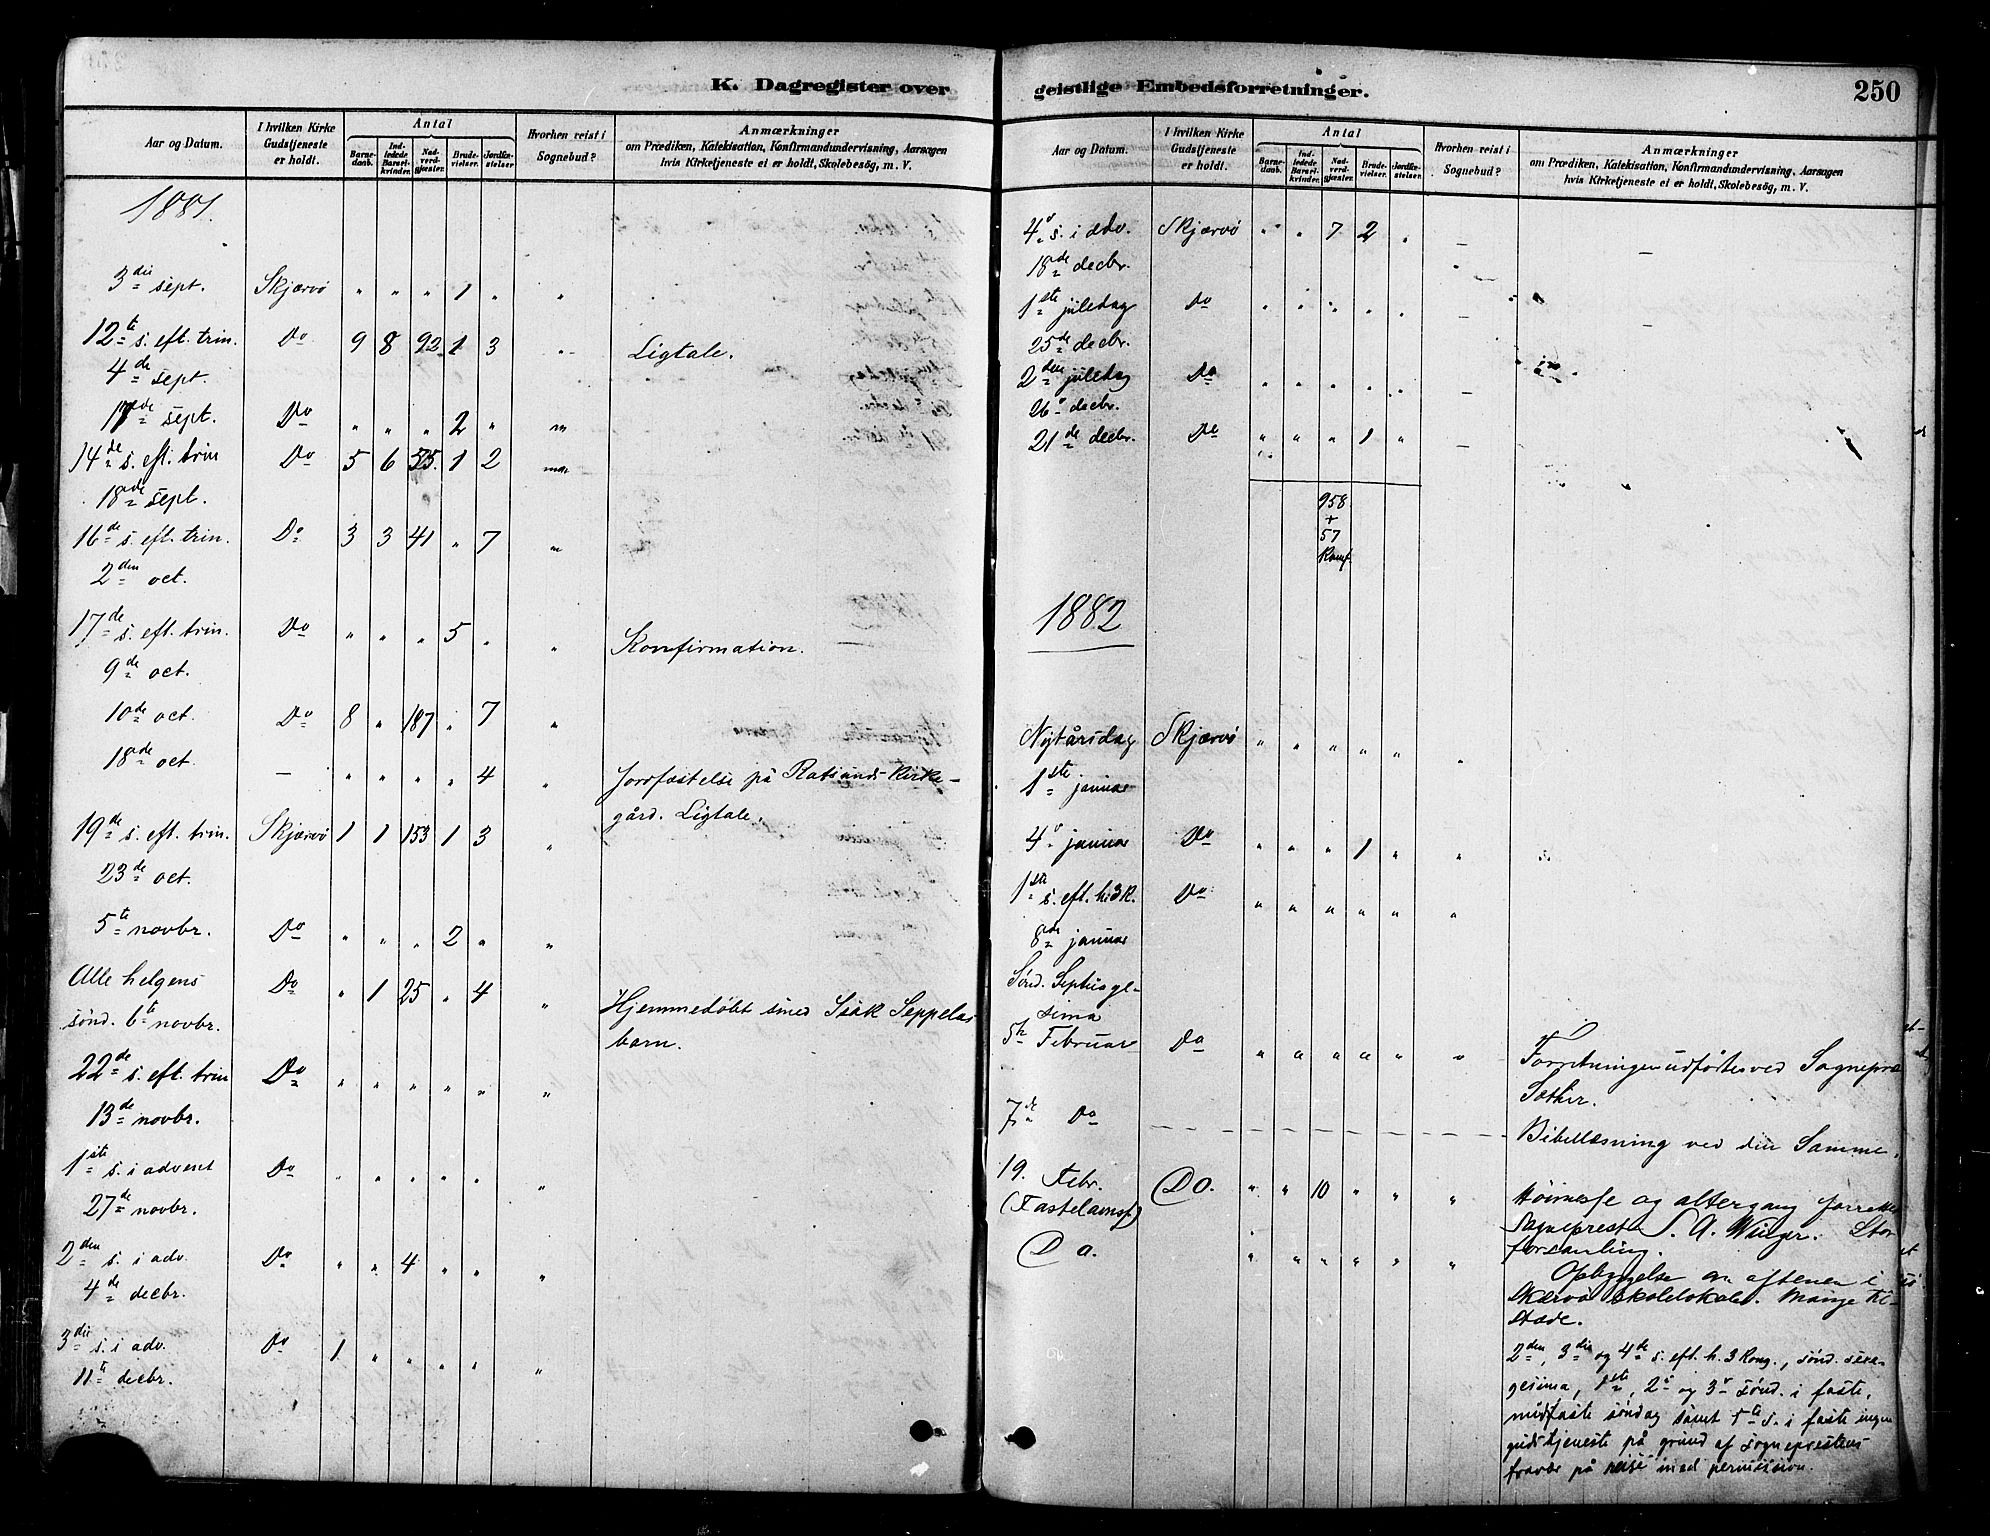 K. Dagregister over
Aar og Datum. I hvilken Kirke Gudstjeneste er holdt. Antal Barnedaab. Indledede Barselkvinder. Nadverdgjæster. Brudevielser. Jordfæstelser. Hvorhen reist i Sognebud? Anmærkninger om Prædiken, Katekisation, Konfirmandundervisning, Aarsagen hvis Kirketjeneste ei er holdt, Skolebesög, m. V.
1881.
3die sept. Skjærvö " " " 1 " "
12te s. eft. trin. Do 9 8 92 1 3 " Ligtale.
4de sept.
17de sept. Do " " " 2 " "
14de s. eft. trin Do 5 6 55. 1 2
18de sept.
16de s. eft. trin. Do 3 3 41 " 7 "
2den oct.
17de s. eft. trin. Do " " " 5 " " Konfirmation.
9de oct.
10de oct. Do 8 " 187 " 7 "
18de oct. — " " " " 4 " Jordfæstelse på Rotsunds Kirke-
gård. Ligtale.
19de s. eft. trin. Skjærvö 1 1 153 1 3 "
23de oct.
5te novbr. Do " " " 2 " "
Alle helgens Do " 1 25 " 4 " Hjemmedöbt smed Isak Seppelas
sönd. 6te novbr. barn.
22de s. eft. trin Do " " " " " "
13de novbr.
1ste s. i advent Do " " " " " "
27de novbr.
2den s. i adv. Do " " 4 " " "
4de decbr.
3die s. i adv. Do 1 " " " " "
11te decbr.
geistlige Embedsforretninger.
250
Aar og Datum. I hvilken Kirke Gudstjeneste er holdt. Antal Barnedaab. Indledede Barselkvinder. Nadverdgjæster. Brudevielser. Jordfæstelser. Hvorhen reist i Sognebud? Anmærkninger om Prædiken, Katekisation, Konfirmandundervisning, Aarsagen hvis Kirketjeneste ei er holdt, Skolebesög, m. V.
4. s. i adv. Skjærvö " " 7 2 " — —
18de decbr.
1ste juledag Do " " " " " — —
25de decbr.
2den juledag Do " " " " " —
26. decbr.
21de decbr. Do " " " 1 " —
958
+
57
Konf.
1882
Nytårsdag Skjærvö " " " " " "
1ste januar
4. januar Do " " " 1 " "
1ste s. eft. h. 3 K. Do " " " " " "
8de januar
Sönd. Septuage-
sima
5te Februar Do " " " " " " Forretningen udförtes ved Sognepræ
Sæther.
7de Do — — — — — — Bibellæsning ved den Samme.
19. Febr. Do. " " 10 " " " Höimesse og altergang forrettet
(Fastelavnss.) Sogneprest S. A. Wünger. Stor
Do. " " " " " " forsamling.
Opbyggelse om aftenen i
Skærvö skolelokale. Mange til-
stede.
2den, 3die og 4de s. eft. h. 3 Kong., sönd. sexa-
gesima, 1ste, 2. og 3. sönd. i faste,
midfaste söndag samt 5te s. i faste ingen
gudstjeneste på grund af sogneprestens
fravær på reise med permission.